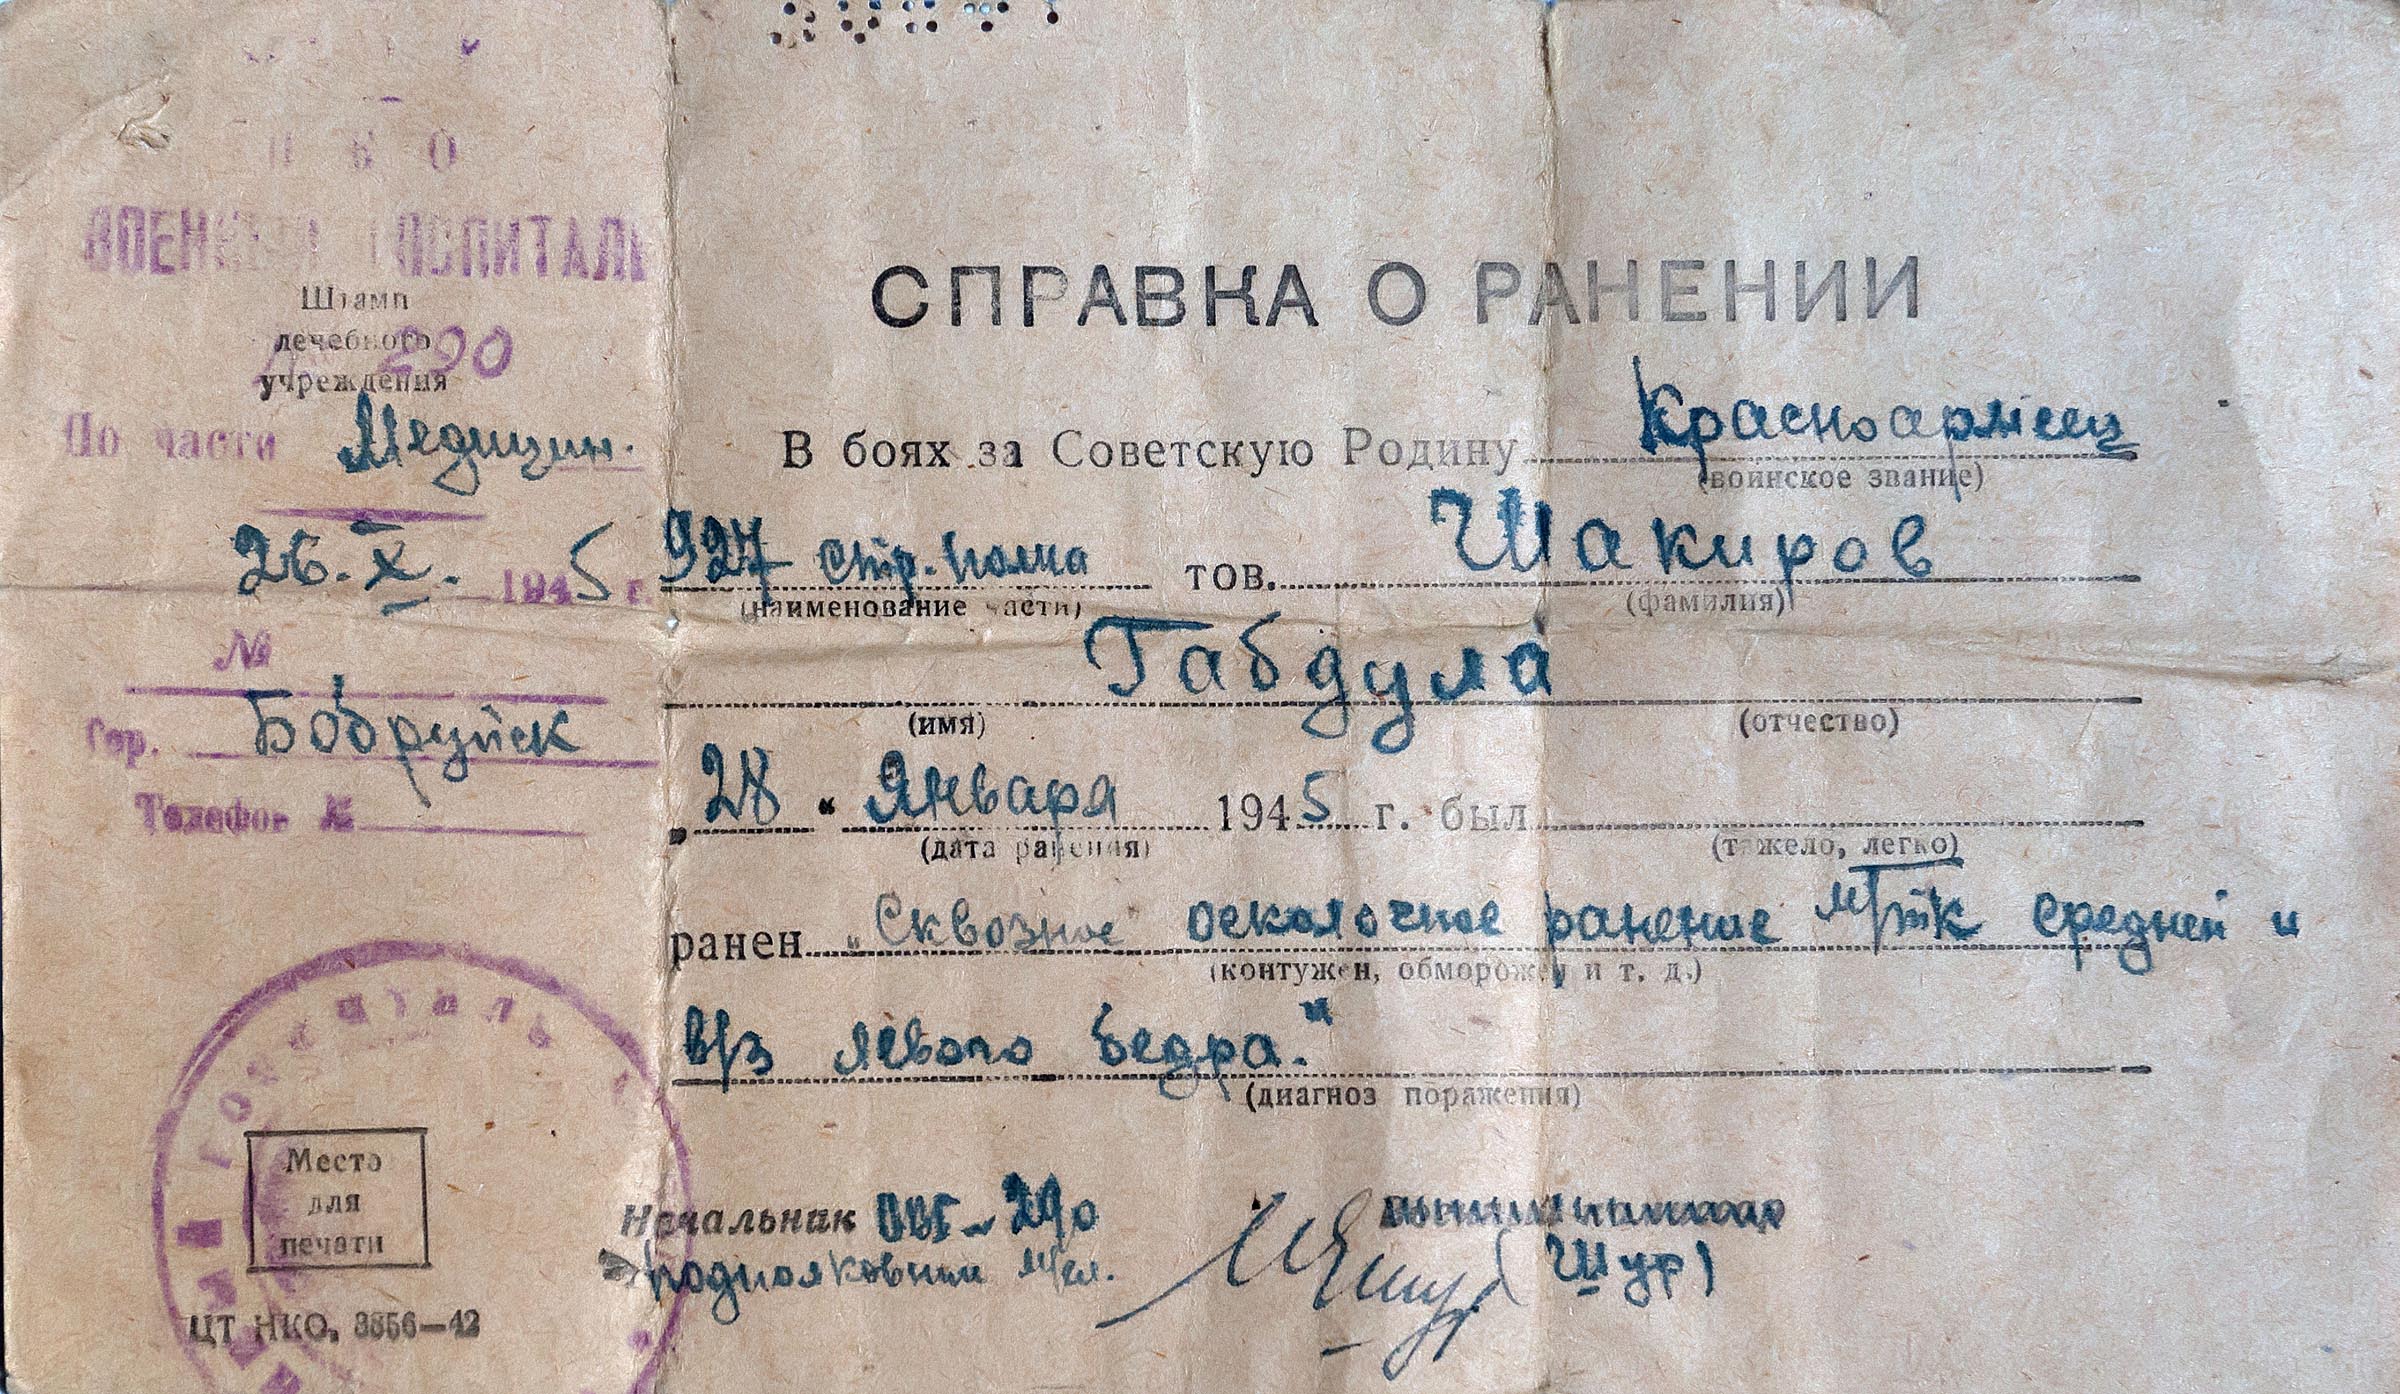 НКО
ВОЕННЫЙ ГОСПИТАЛЬ
Штамп
лечебного
учреждения
№ 290
По части Медицин.
26. X. 1945 г.
№
Гор. Бобруйск
Телефон №
СПРАВКА О РАНЕНИИ
В боях за Советскую Родину Красноармеец
(воинское звание)
927 стр. полка тов. Шакиров
(наименование части) (фамилия)
Габдула
(имя) (отчество)
„28“ Января 1945 г. был
(дата ранения) (тяжело, легко)
ранен „Сквозное осколочное ранение м/тк средней и
(контужен, обморожен и т. д.)
в/з левого бедра."
(диагноз поражения)
Начальник ОВГ-290
подполковник м/сл. (Шур)
ГОСПИТАЛЬ
Место
для
печати
ЦТ НКО, 3856—42